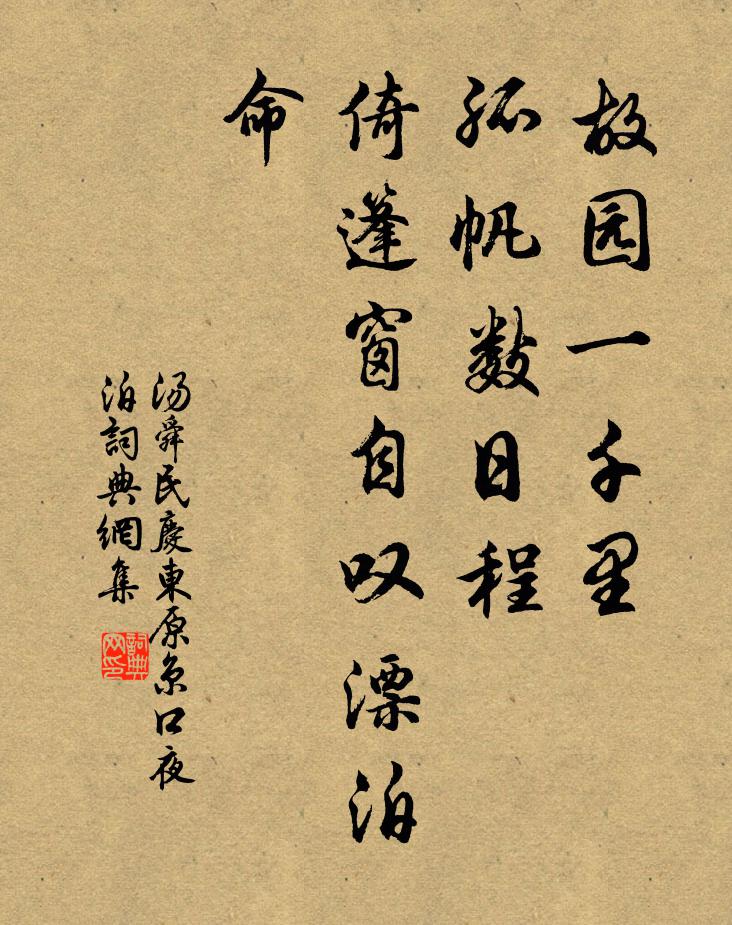 故园一千里
孤帆数日程
倚篷窗自叹漂泊
命
汤舜民慶東原京口夜
泊詞典網集
詞典网印